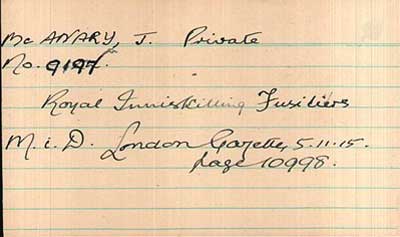 Mc ANARY, J. Private
No. 9197.
Royal Inniskilling Fusiliers
M. i. D. London Gazette, 5.11.15.
page 10998.